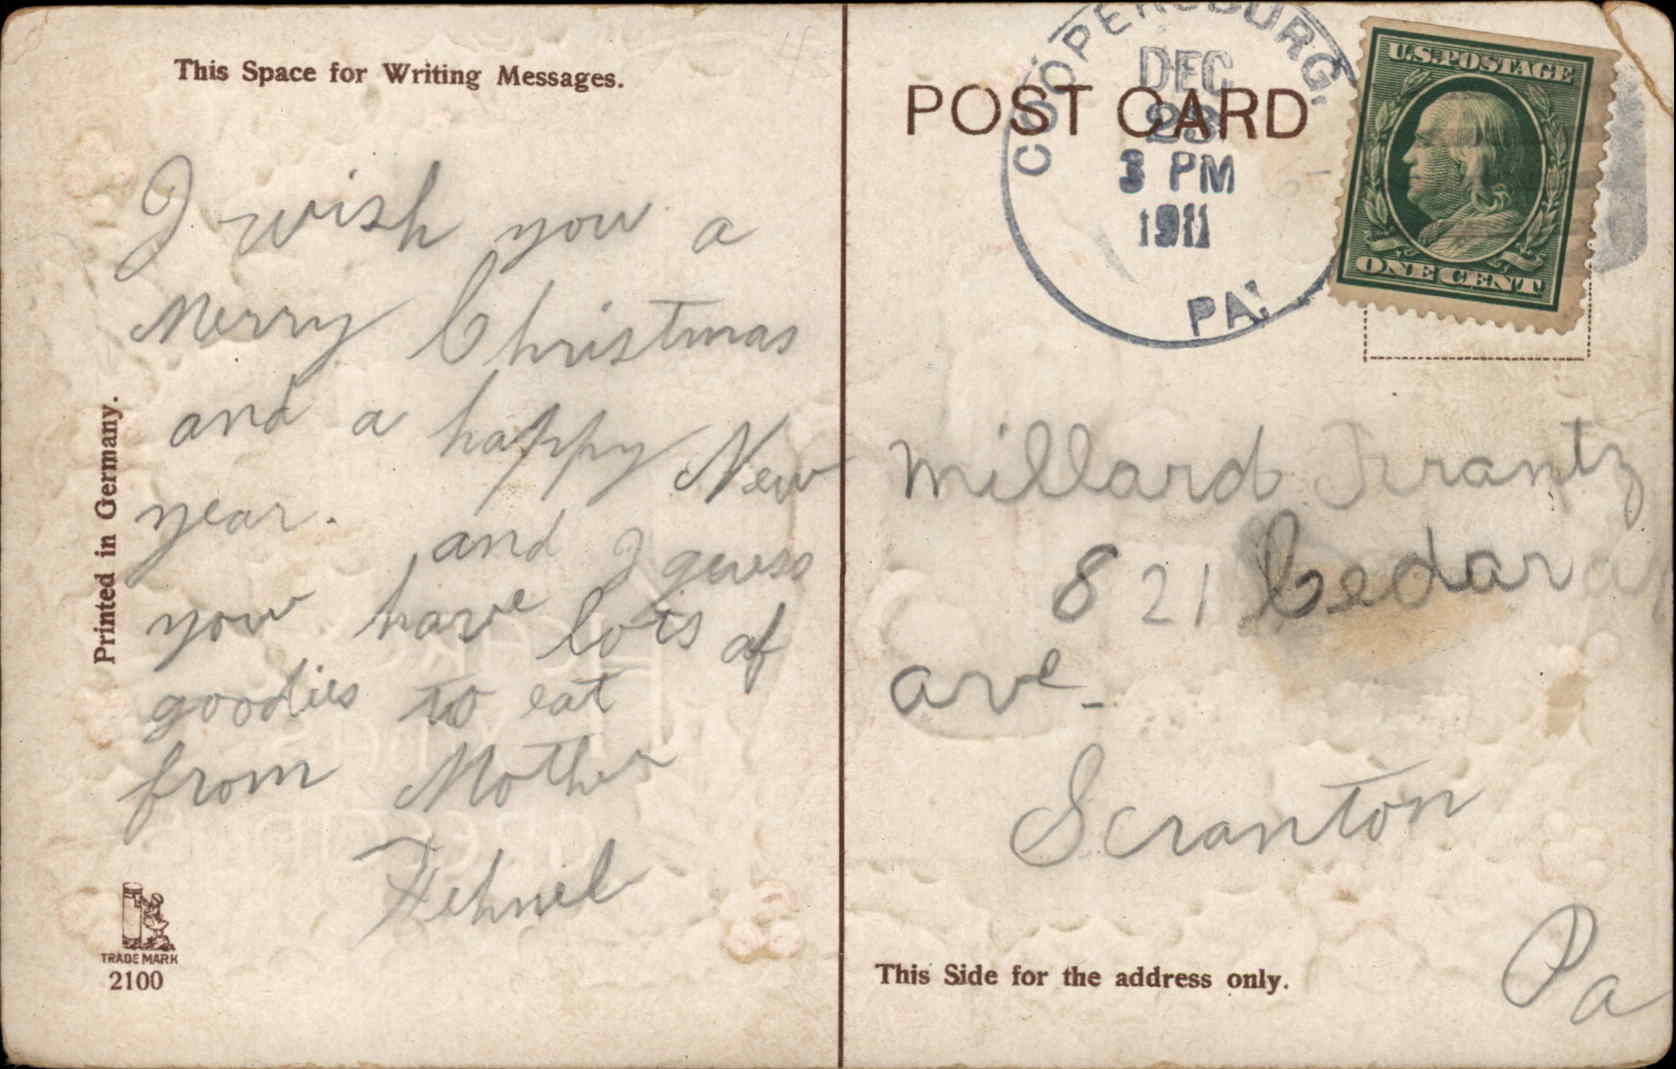 This Space for Writing Messages.
I wish you a
Merry Christmas
and a happy New
year. and I guess
you have lots of
goodies to eat
from Mother
Fehnel
Printed in Germany.
TRADE MARK
2100
COOPERSBURG,
DEC
23
3 PM
1911
PA.
POST CARD
U.S. POSTAGE
ONE CENT
Millard Frantz
821 Cedar
ave
Scranton
Pa
This Side for the address only.